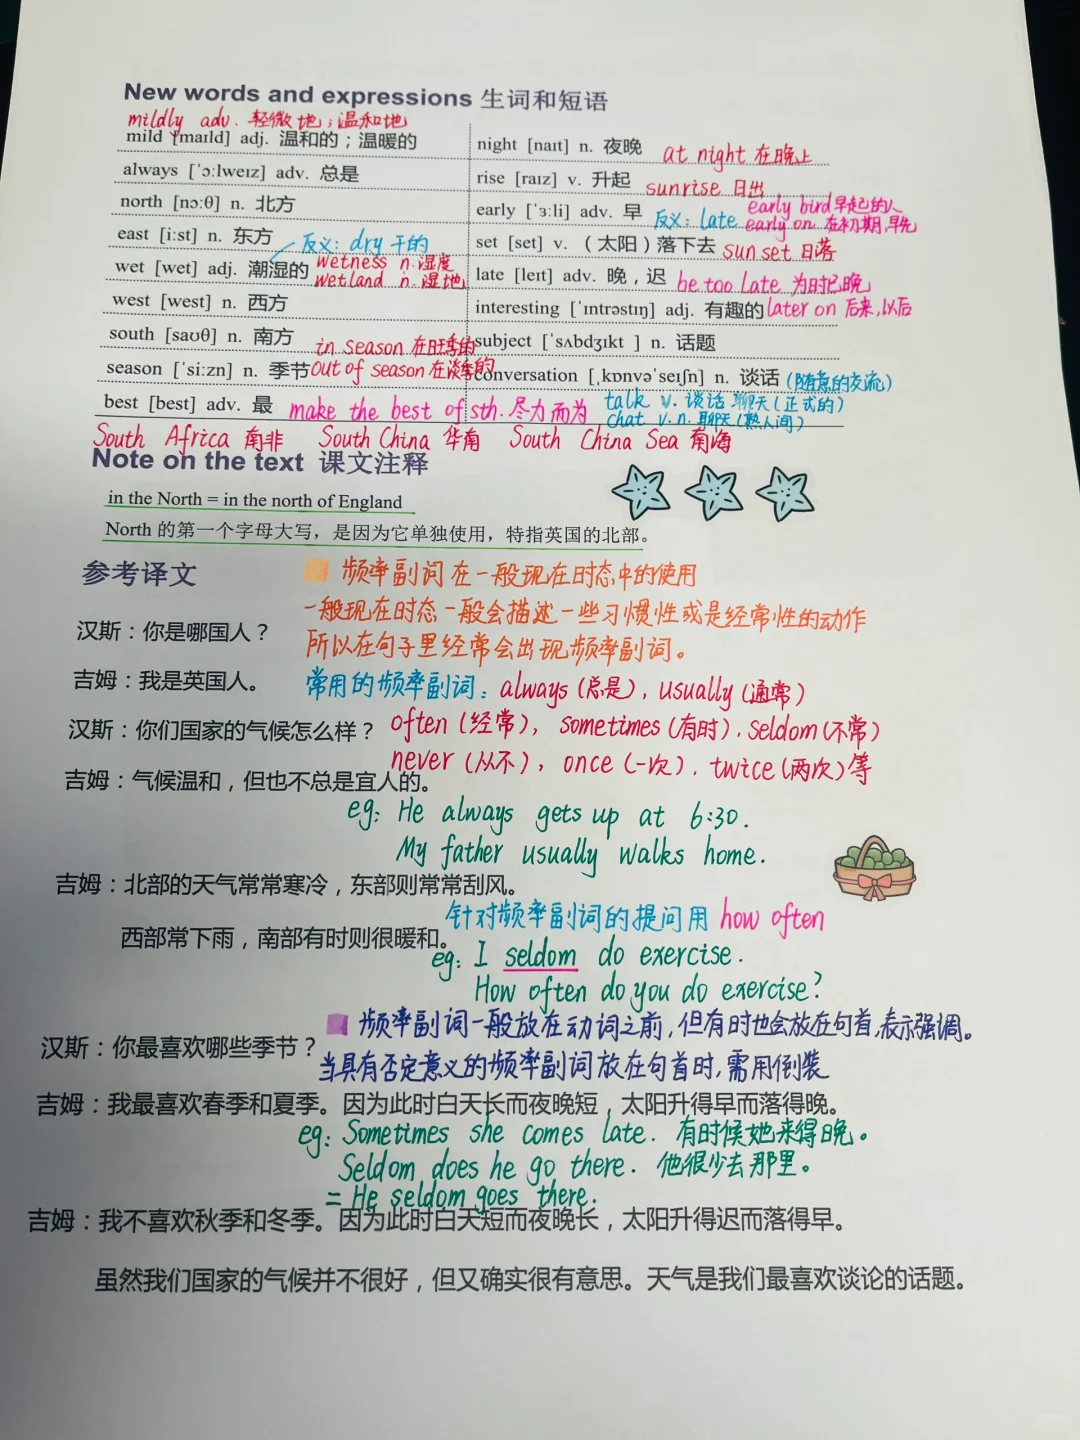 New words and expressions 生词和短语
mildly adv. 轻微地；温和地
mild [maɪld] adj. 温和的；温暖的
always [ˈɔ:lweɪz] adv. 总是
north [nɔ:θ] n. 北方
east [i:st] n. 东方
反义：dry 干的
wet [wet] adj. 潮湿的 wetness n. 湿度
wetland n. 湿地
west [west] n. 西方
south [saʊθ] n. 南方
in season 在旺季的
season [ˈsi:zn] n. 季节 out of season 在淡季的
best [best] adv. 最 make the best of sth. 尽力而为
night [naɪt] n. 夜晚 at night 在晚上
rise [raɪz] v. 升起 sunrise 日出
early bird 早起的人
early [ˈɜ:li] adv. 早 反义：late early on 在初期,早先
set [set] v. （太阳）落下去 sunset 日落
late [leɪt] adv. 晚，迟 be too late 为时已晚
interesting [ˈɪntrəstɪŋ] adj. 有趣的 later on 后来,以后
subject [ˈsʌbdʒɪkt ] n. 话题
conversation [ˌkɒnvəˈseɪʃn] n. 谈话 (随意的交流)
talk v. 谈话 聊天(正式的)
chat v.n. 聊天(熟人间)
South Africa 南非 South China 华南 South China Sea 南海
Note on the text 课文注释
in the North = in the north of England
North 的第一个字母大写，是因为它单独使用，特指英国的北部。
参考译文
频率副词在一般现在时态中的使用
一般现在时态一般会描述一些习惯性或是经常性的动作
汉斯：你是哪国人？
所以在句子里经常会出现频率副词。
吉姆：我是英国人。
常用的频率副词：always (总是), usually (通常)
汉斯：你们国家的气候怎么样？ often (经常), sometimes (有时), seldom (不常)
never (从不), once (一次), twice (两次)等
吉姆：气候温和，但也不总是宜人的。
eg: He always gets up at 6:30.
My father usually walks home.
吉姆：北部的天气常常寒冷，东部则常常刮风。
针对频率副词的提问用 how often
西部常下雨，南部有时则很暖和。
eg: I seldom do exercise.
How often do you do exercise?
频率副词一般放在动词之前,但有时也会放在句首,表示强调。
汉斯：你最喜欢哪些季节？
当具有否定意义的频率副词放在句首时,需用倒装
吉姆：我最喜欢春季和夏季。因为此时白天长而夜晚短，太阳升得早而落得晚。
eg: Sometimes she comes late. 有时候她来得晚。
Seldom does he go there. 他很少去那里。
= He seldom goes there.
吉姆：我不喜欢秋季和冬季。因为此时白天短而夜晚长，太阳升得迟而落得早。
虽然我们国家的气候并不很好，但又确实很有意思。天气是我们最喜欢谈论的话题。